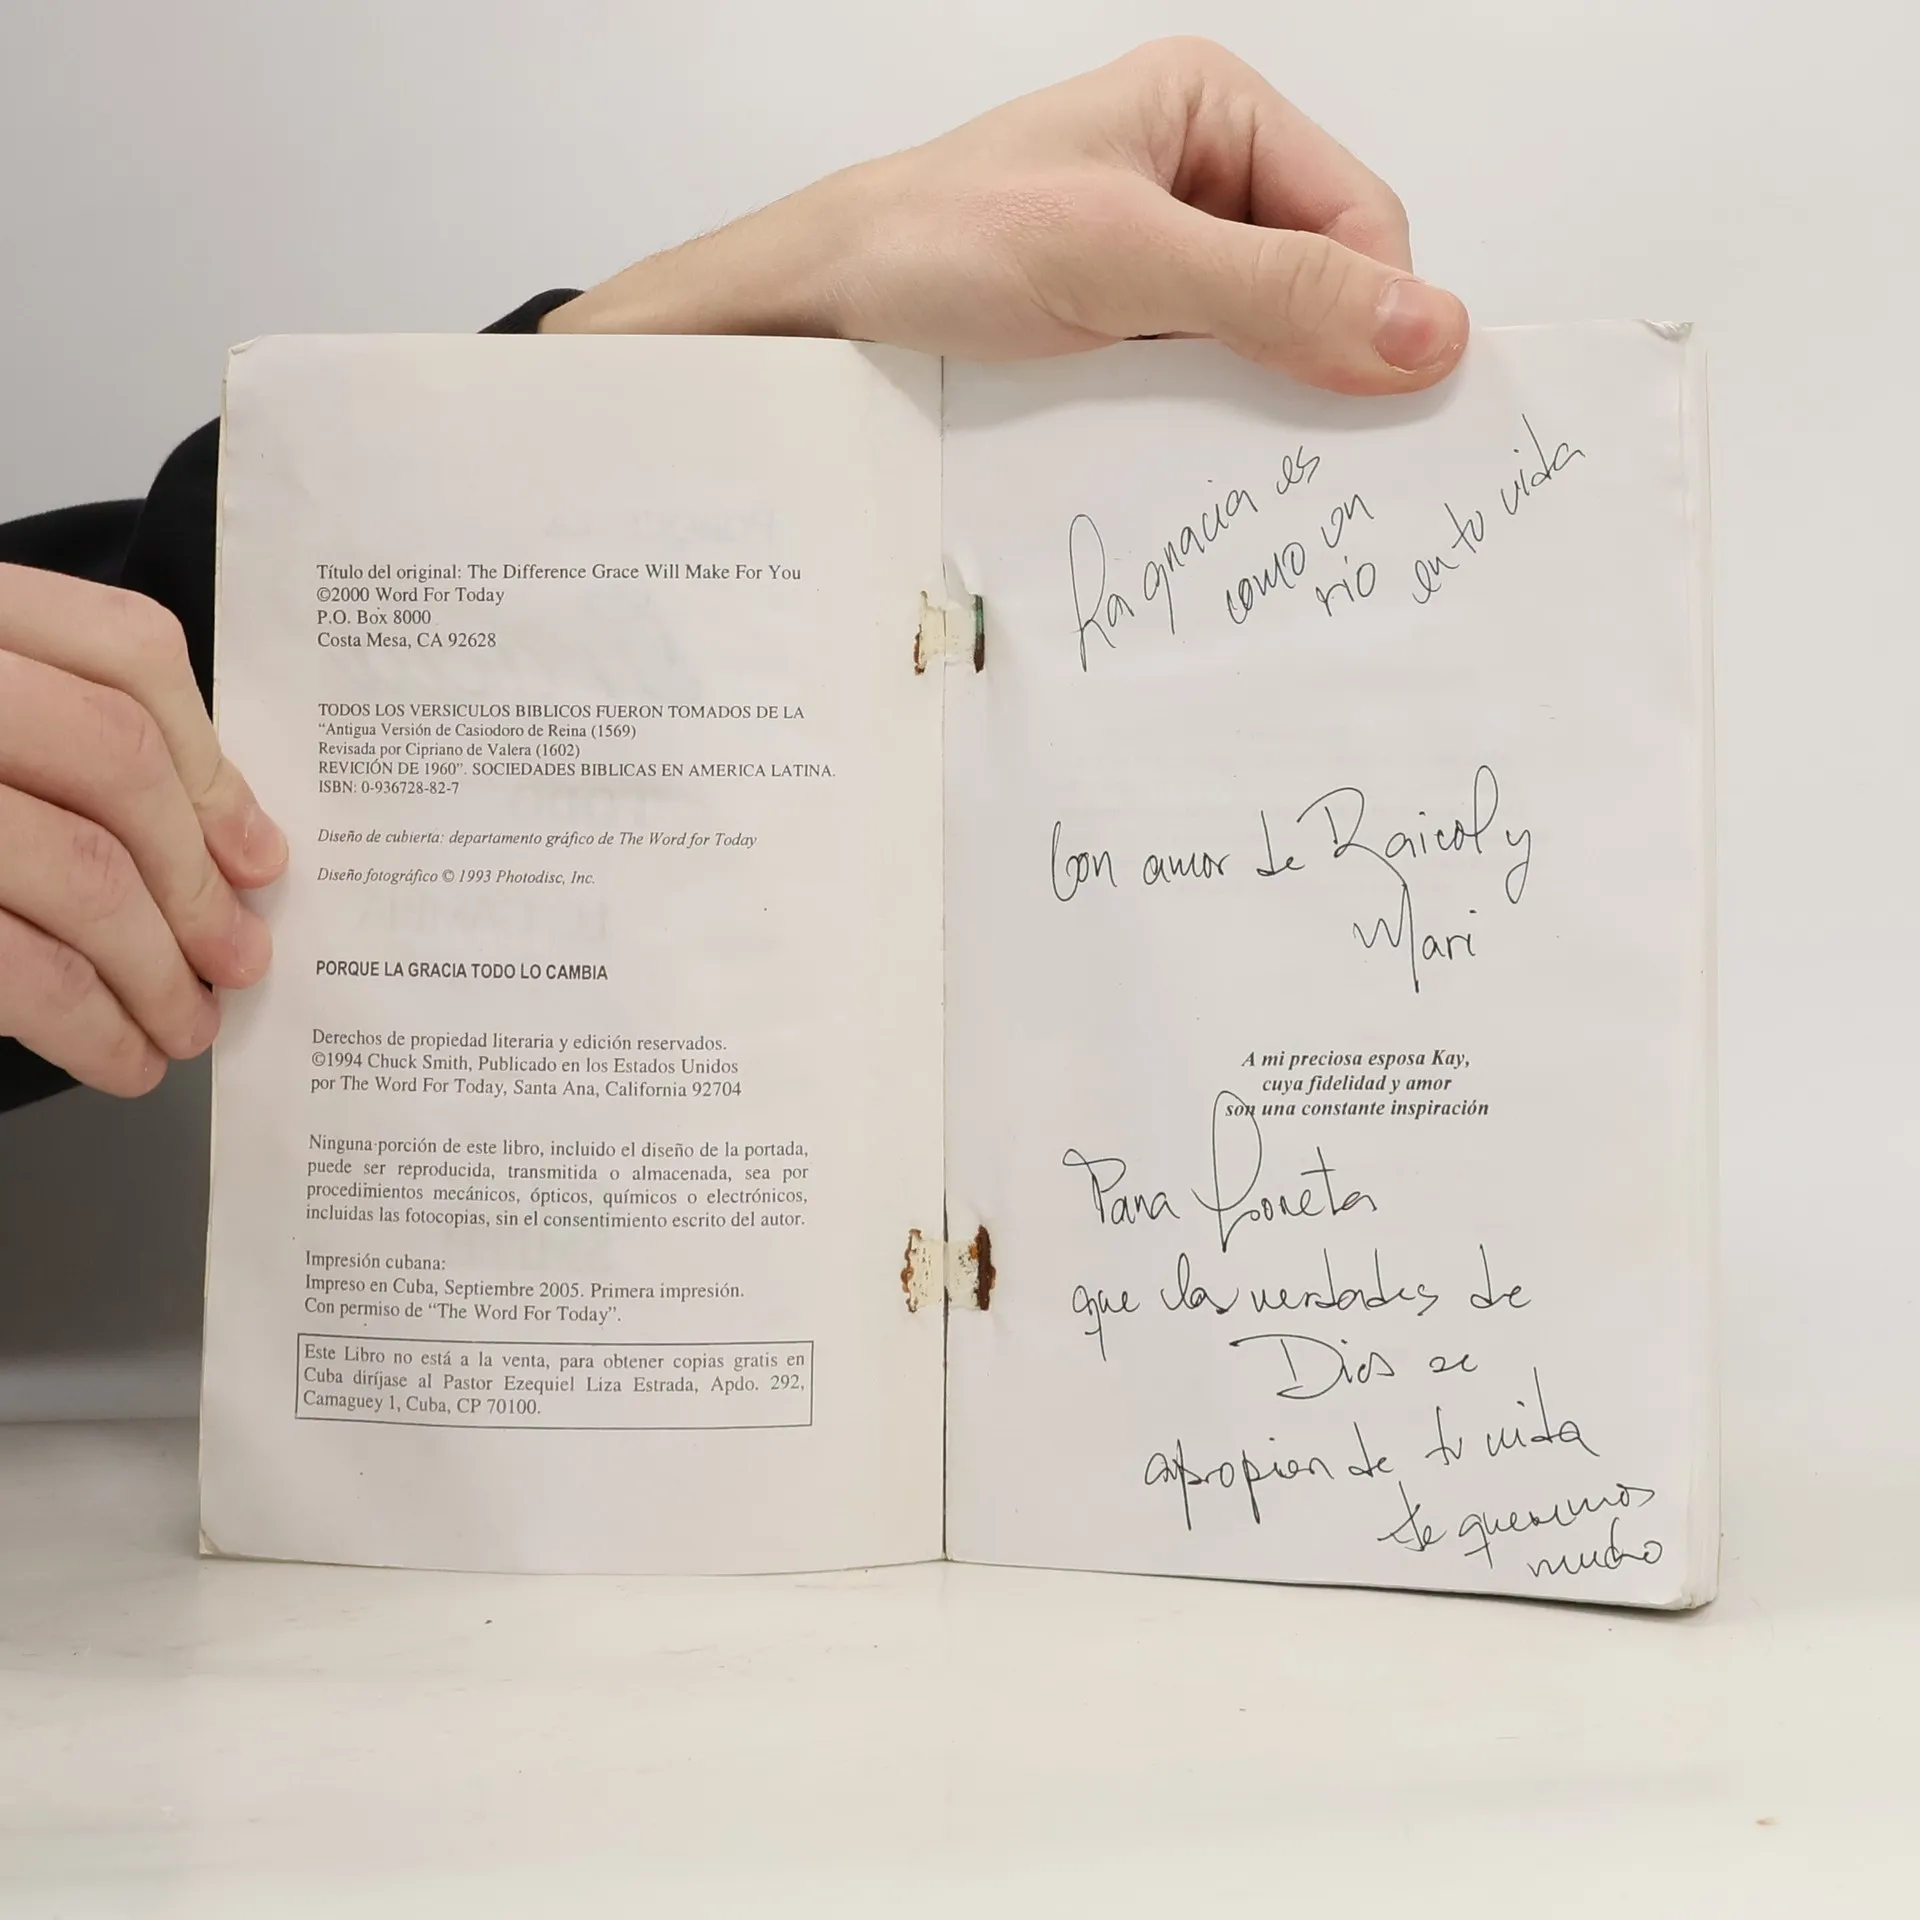 Título del original: The Difference Grace Will Make For You
©2000 Word For Today
P.O. Box 8000
Costa Mesa, CA 92628
TODOS LOS VERSICULOS BIBLICOS FUERON TOMADOS DE LA
“Antigua Versión de Casiodoro de Reina (1569)
Revisada por Cipriano de Valera (1602)
REVICIÓN DE 1960”. SOCIEDADES BIBLICAS EN AMERICA LATINA.
ISBN: 0-936728-82-7
Diseño de cubierta: departamento gráfico de The Word for Today
Diseño fotográfico © 1993 Photodisc, Inc.
PORQUE LA GRACIA TODO LO CAMBIA
Derechos de propiedad literaria y edición reservados.
©1994 Chuck Smith, Publicado en los Estados Unidos
por The Word For Today, Santa Ana, California 92704
Ninguna porción de este libro, incluido el diseño de la portada,
puede ser reproducida, transmitida o almacenada, sea por
procedimientos mecánicos, ópticos, químicos o electrónicos,
incluidas las fotocopias, sin el consentimiento escrito del autor.
Impresión cubana:
Impreso en Cuba, Septiembre 2005. Primera impresión.
Con permiso de “The Word For Today”.
Este Libro no está a la venta, para obtener copias gratis en
Cuba diríjase al Pastor Ezequiel Liza Estrada, Apdo. 292,
Camaguey 1, Cuba, CP 70100.
La gracia es
como un
río en tu vida
Con amor de Raicol y
Mari
A mi preciosa esposa Kay,
cuya fidelidad y amor
son una constante inspiración
Para Loreta
que las verdades de
Dios se
apropien de tu vida
te queremos
mucho